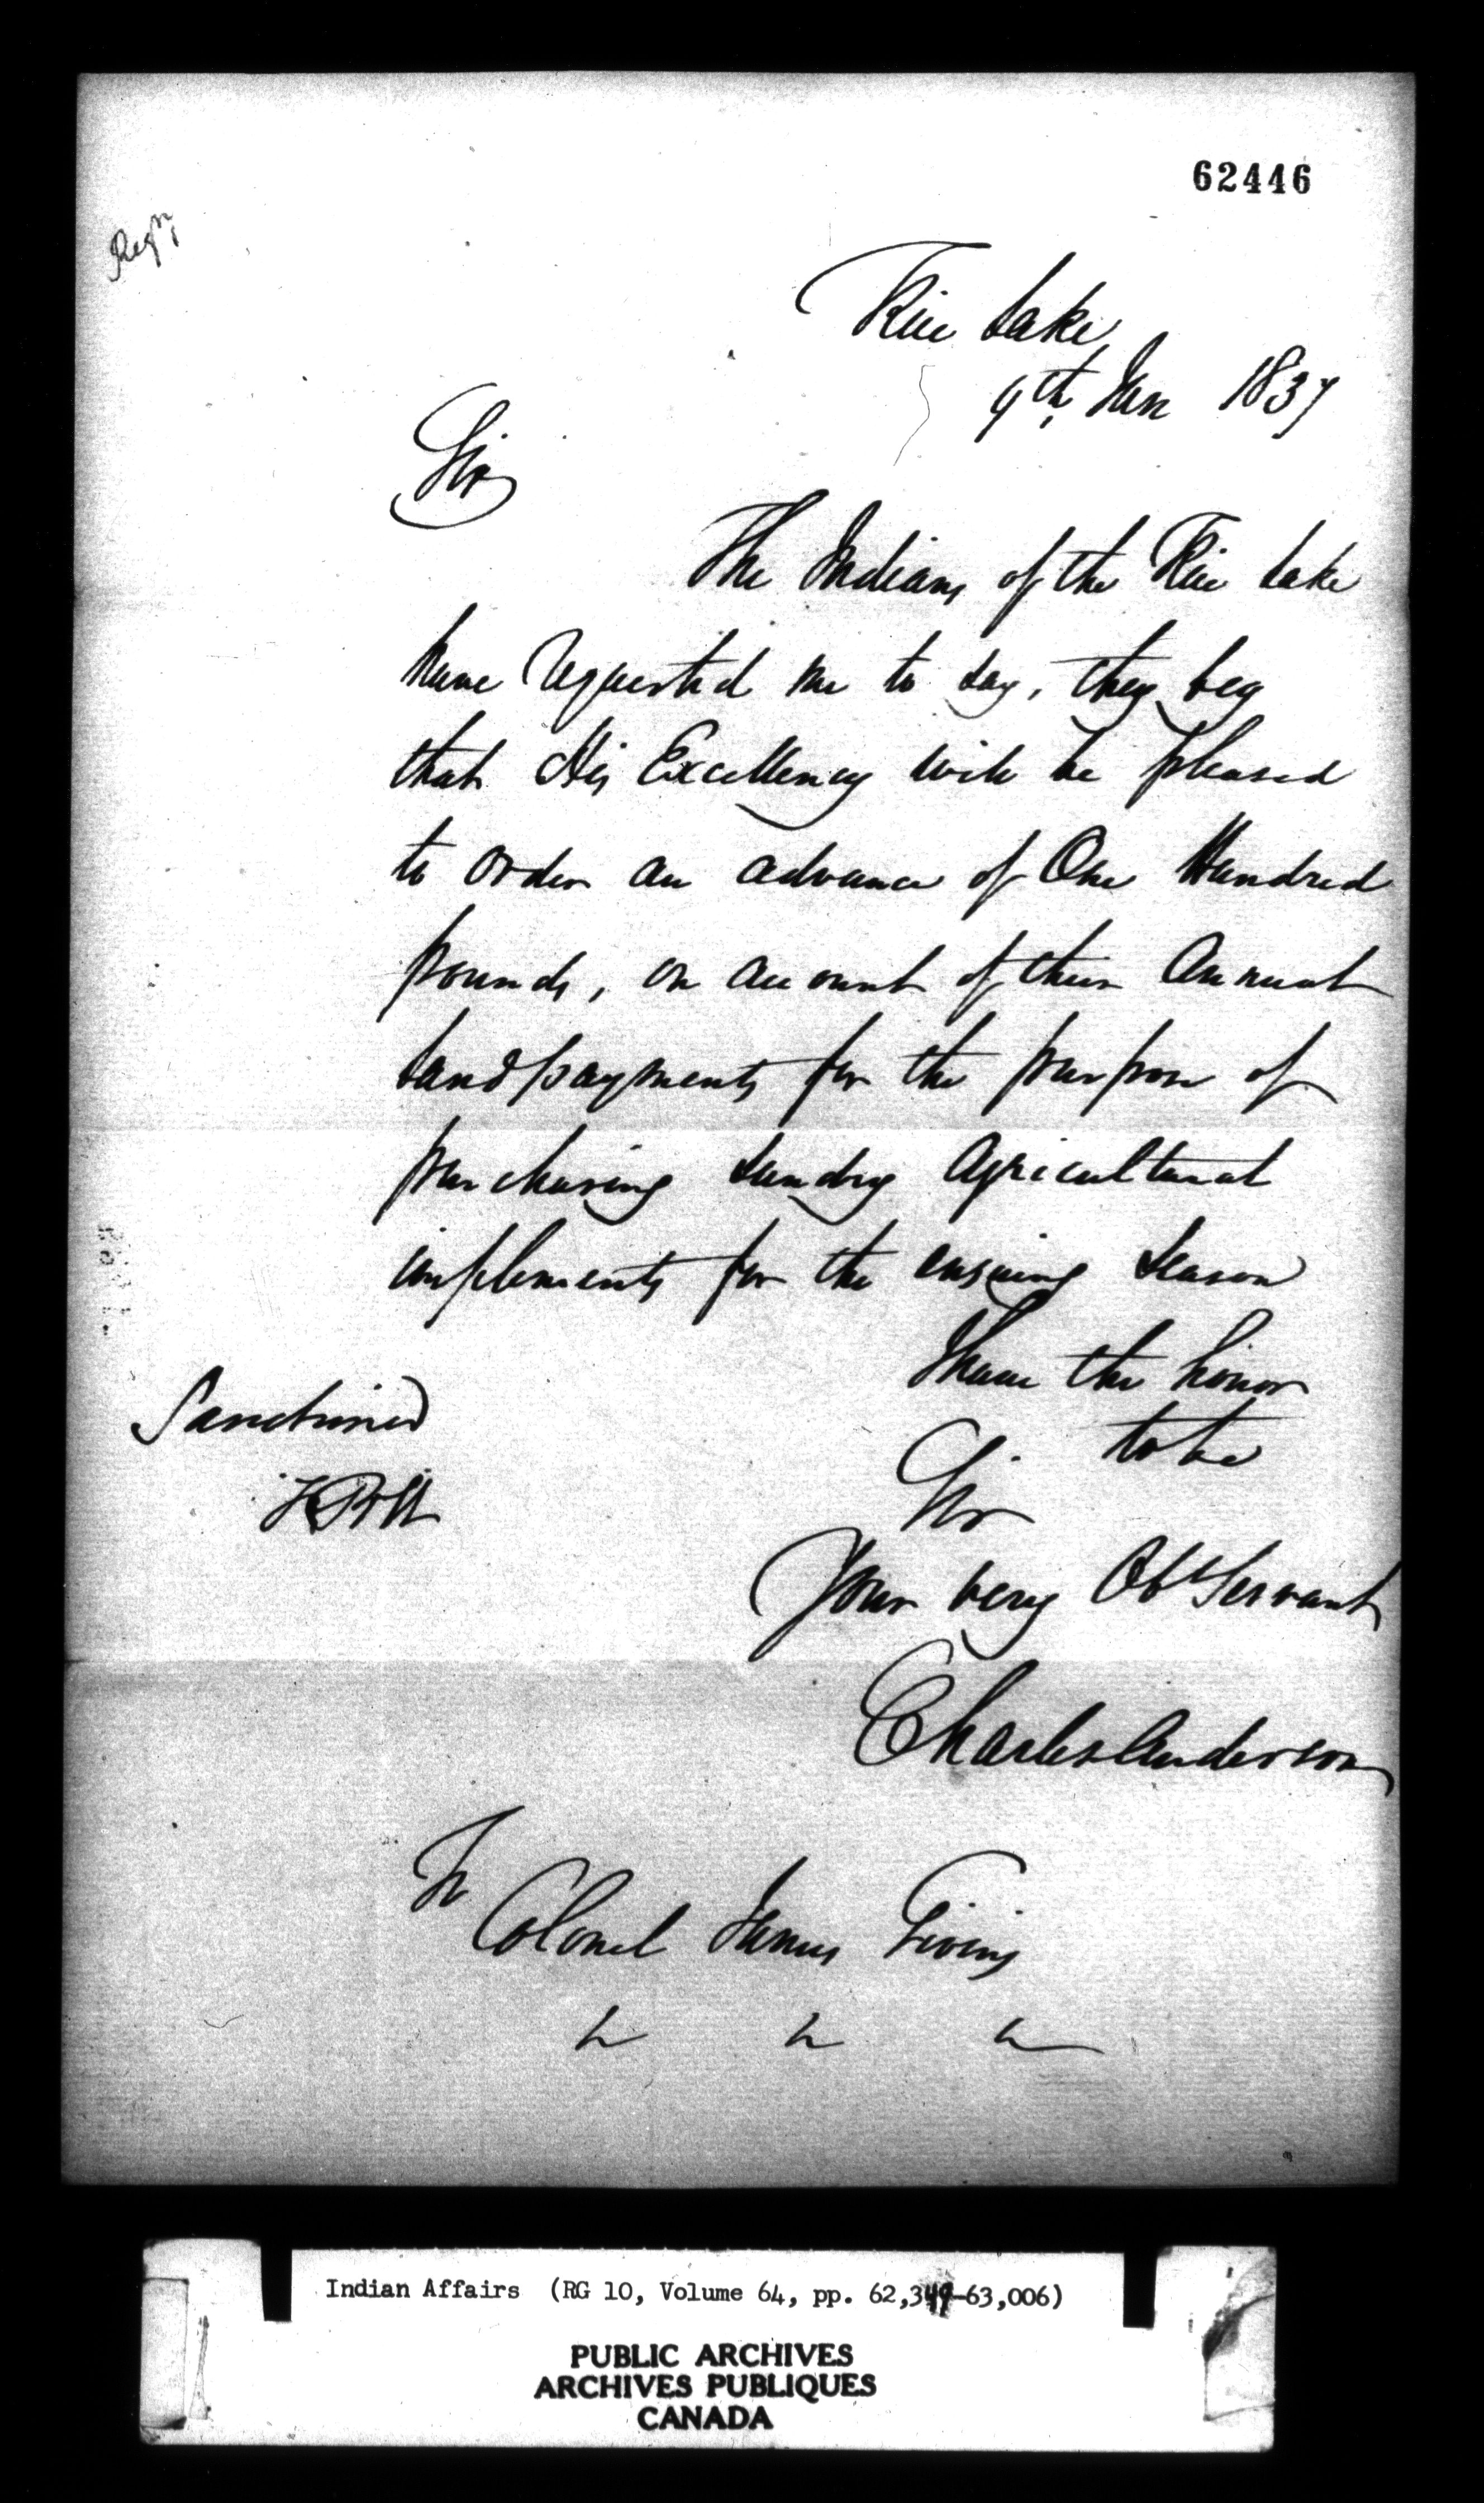 62446
Regd
Rice Lake
9th Jan 1837
Sir
The Indians of the Rice Lake
have requested me to say, they beg
that His Excellency will be pleased
to order an advance of One Hundred
pounds, on account of their Annual
Land payments for the purpose of
purchasing sundry Agricultural
implements for the ensuing Season
I have the honor
to be
Sir
Your very Obt Servant
Charles Anderson
Sanctioned
FBH
To
Colonel James Givins
Indian Affairs (RG 10, Volume 64, pp. 62,349-63,006)
PUBLIC ARCHIVES
ARCHIVES PUBLIQUES
CANADA